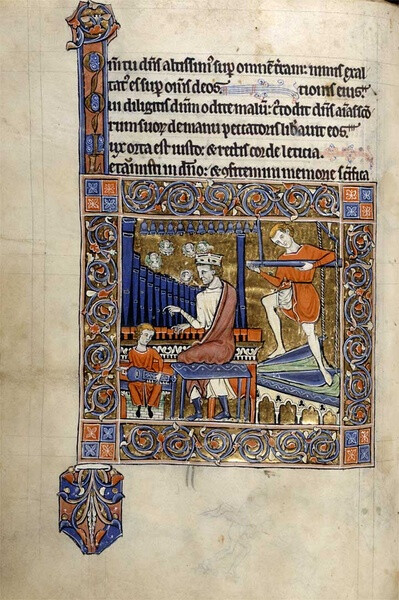 Qm̄ tu dn̄s altissimꝰ suꝑ omnē trām: nimis exal
tatꝰ es suꝑ om̄s deos. tionis eiꝰ.
Qui diligitis dn̄m odite malū: cꝰtodit dn̄s aīas scō
rum suoꝝ de manu peccatoris libauit eos.
Lux orta est iusto: & rectis corde leticia.
Letam̄i iusti in dn̄o: & ꝯfitemini memorie scīfica